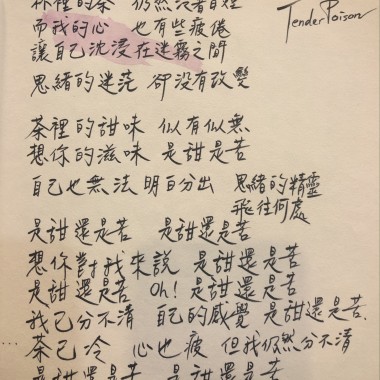 杯裡的茶 仍然沉著自在
Tender Poison
而我的心 也有些疲倦
讓自己沈浸在迷霧之間
思緒的迷茫 卻没有改變
茶裡的甜味 似有似無
想你的滋味 是甜是苦
自己也無法明白分出 思緒的精靈
飛往何處
是甜還是苦 是甜還是苦
想你對我來説 是甜還是苦
是甜還是苦 Oh! 是甜還是苦
我已分不清 自己的感覺 是甜還是苦.
茶已冷 心也疲 但我仍然分不清
是甜還是苦 是甜還是苦